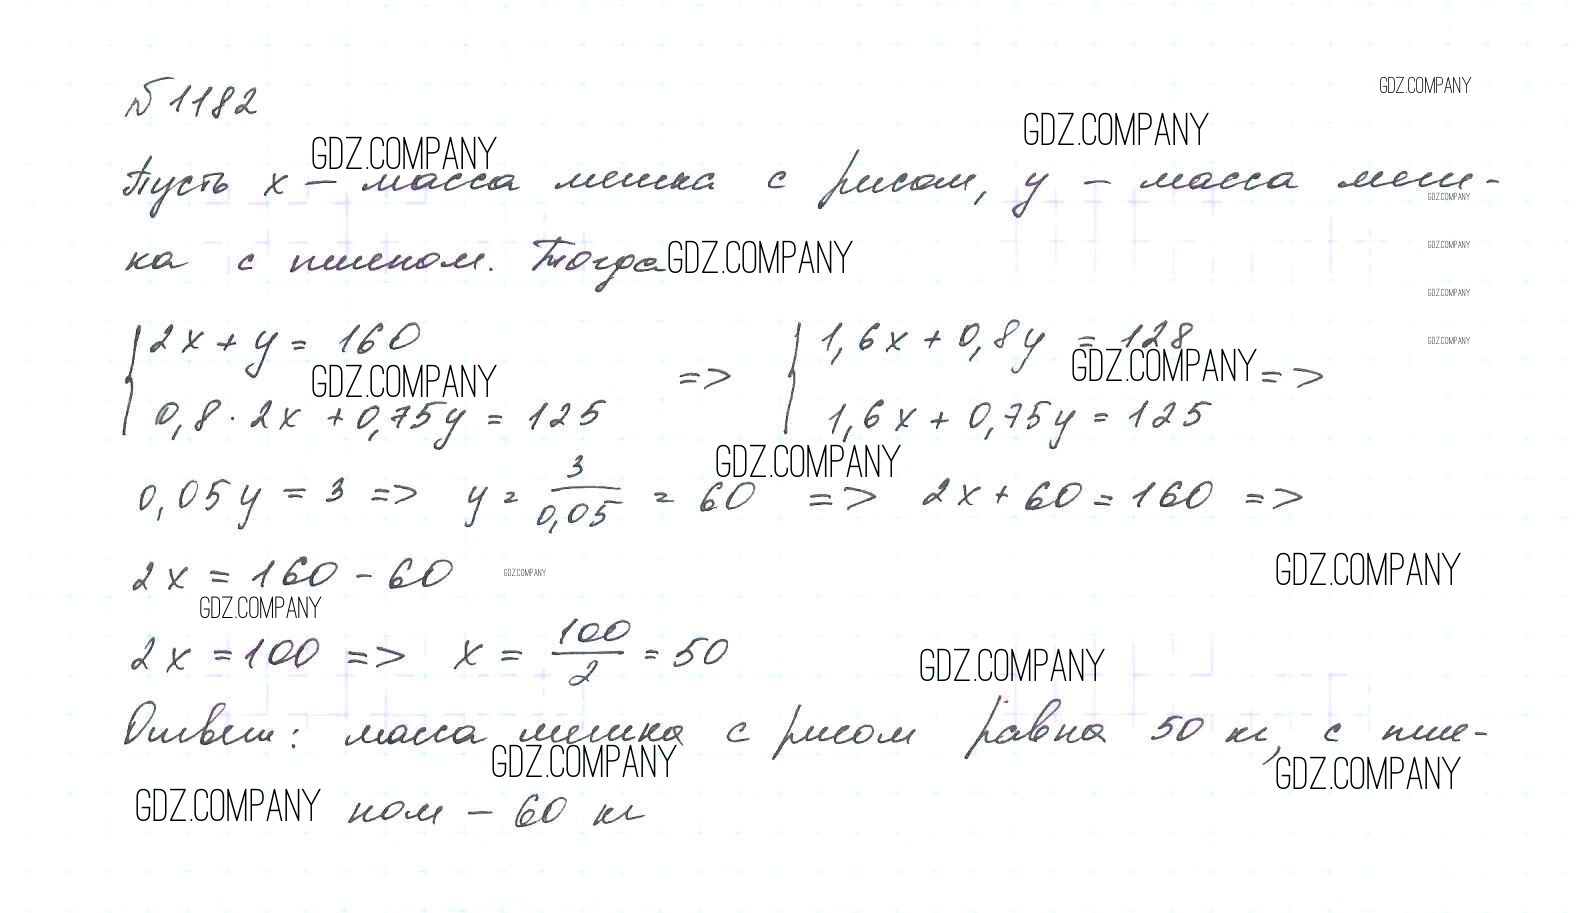 №1182
GDZ.COMPANY
GDZ.COMPANY
GDZ.COMPANY
Пусть x – масса мешка с рисом, y – масса меш-
GDZ.COMPANY
ка с пшеном. Тогда
GDZ.COMPANY
GDZ.COMPANY
GDZ.COMPANY
2x + y = 160
1,6x + 0,8y = 128
GDZ.COMPANY
GDZ.COMPANY
=>
GDZ.COMPANY
=>
0,8 · 2x + 0,75y = 125
1,6x + 0,75y = 125
GDZ.COMPANY
0,05y = 3 => y = 3/0,05 = 60 => 2x + 60 = 160 =>
2x = 160 - 60
GDZ.COMPANY
GDZ.COMPANY
GDZ.COMPANY
2x = 100 => x = 100/2 = 50
GDZ.COMPANY
Ответ: масса мешка с рисом равна 50 кг, с пше-
GDZ.COMPANY
GDZ.COMPANY
GDZ.COMPANY
ном – 60 кг